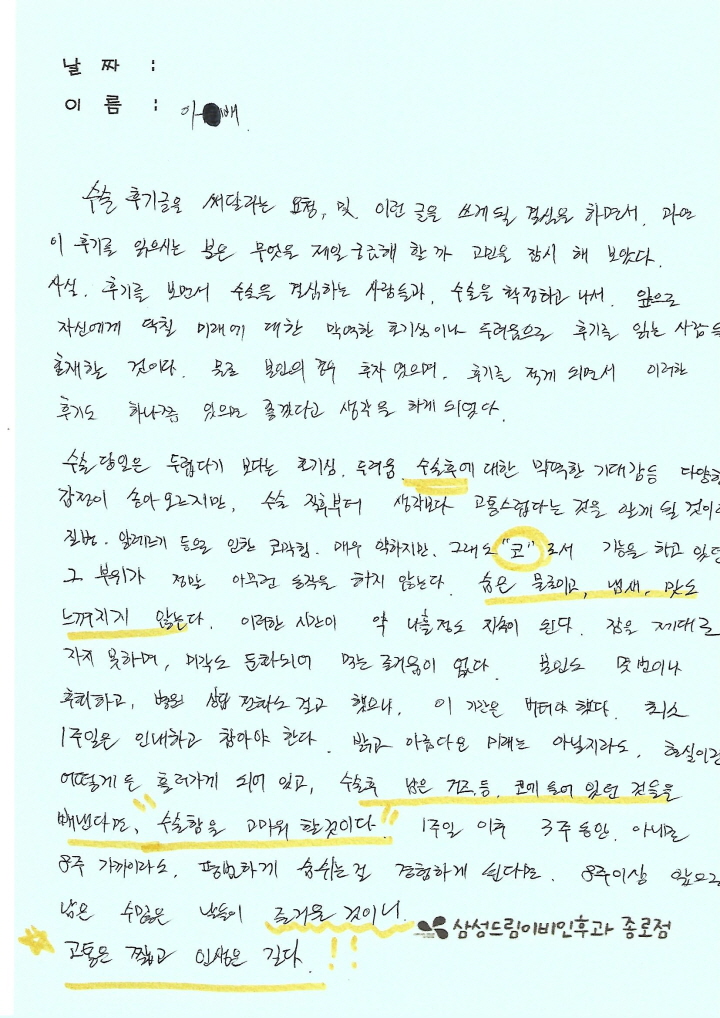 날 짜 :
이 름 : 이 배
수술 후기글을 써달라는 요청, 및 이런 글을 쓰게 될 결심을 하면서, 과연
이 후기를 읽으시는 분은 무엇을 제일 궁금해 할 까 고민을 잠시 해 보았다.
사실, 후기를 보면서 수술을 결심하는 사람들과, 수술을 확정하고 나서, 앞으로
자신에게 닥칠 미래에 대한 막연한 호기심이나 두려움으로 후기를 읽는 사람들
존재하는 것이다. 물론 본인의 경우 후자 였으며, 후기를 적게 되면서 이러한
후기도 하나쯤 있으면 좋겠다고 생각을 하게 되었다.
수술 당일은 두렵다기 보다는 호기심, 두려움, 수술후에 대한 막연한 기대감등 다양한
감정이 솟아 오르지만, 수술 직후부터 생각보다 고통스럽다는 것을 알게 될 것이
질병, 알레르기 등으로 인한 코막힘. 매우 약하지만, 그래도 "코"로서 기능을 하고 있던
그 부위가 정말 아무런 동작을 하지 않는다. 숨은 물론이고, 냄새, 맛도
느껴지지 않는다. 이러한 시간이 약 나흘정도 지속이 된다. 잠을 제대로
자지 못하며, 미각도 둔화되어 먹는 즐거움이 없다. 본인도 몇 번이나
후회하고, 병원 상담 전화도 걸고 했으나, 이 기간은 버텨야 했다. 최소
1주일은 인내하고 참아야 한다. 밝고 아름다운 미래는 아닐지라도, 현실이란
어떻게든 흘러가게 되어 있고, 수술후 남은 거즈 등, 코에 들어 있던 것들을
빼낸다면, "수술함을 고마워 할것이다" 1주일 이후 3주 동안, 아니면
8주 가까이라도, 평범하게 숨쉬는걸 경험하게 된다면, 8주이상 앞으로
남은 수많은 날들이 즐거울 것이니.
삼성드림이비인후과 종로점
고통은 짧고 인생은 길다. !!